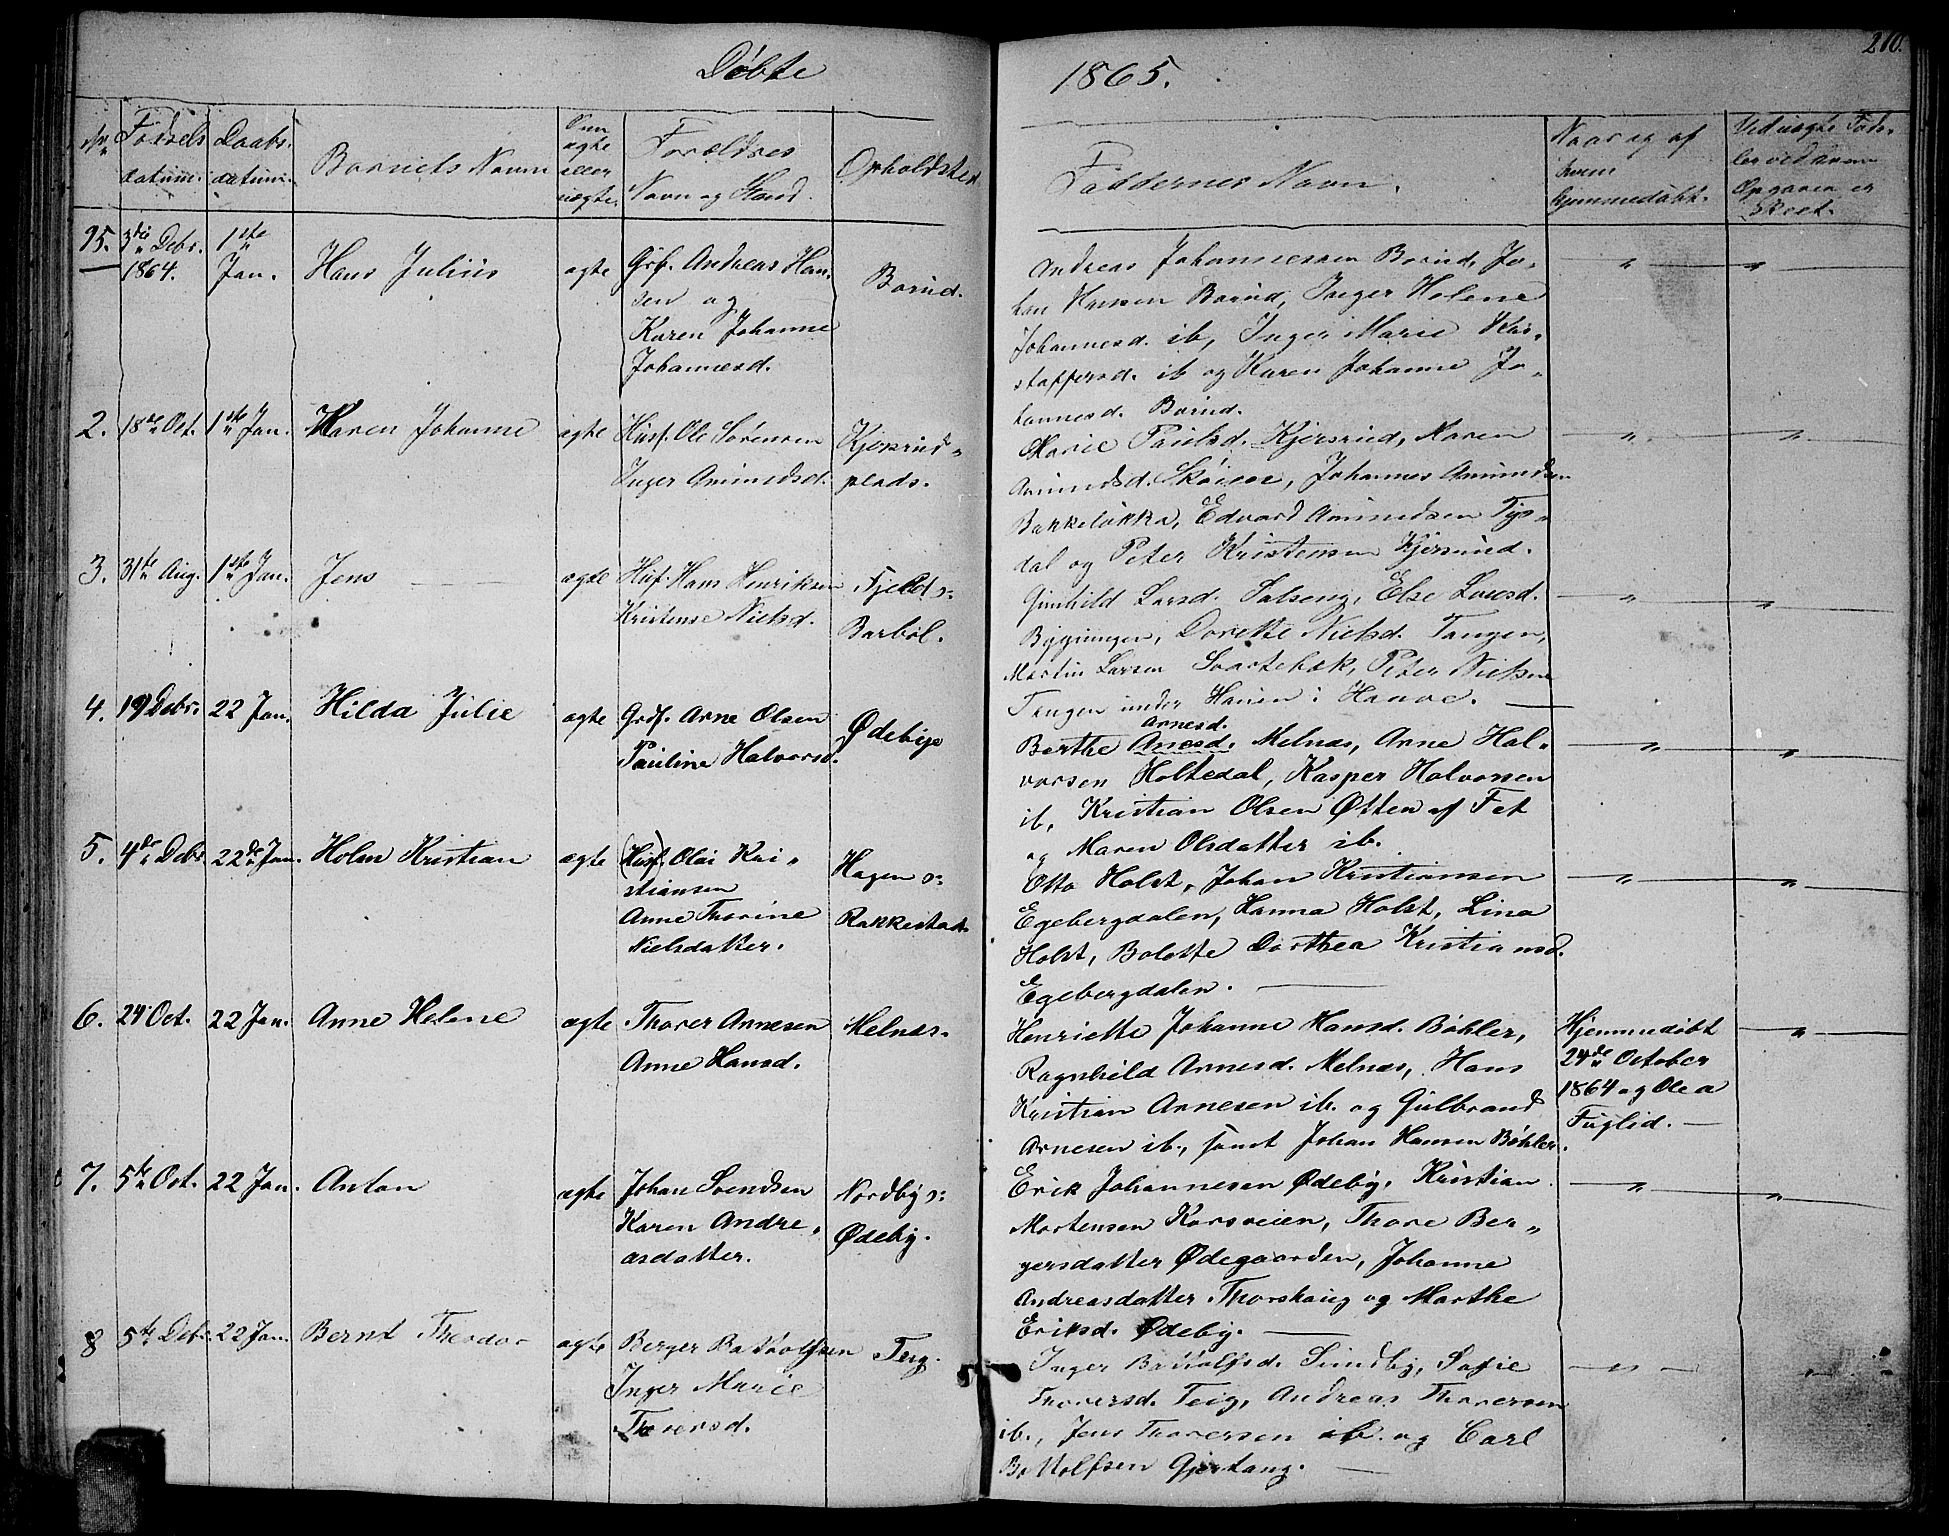 Døbte
1865.
210.
No
Fødsels
datum.
Daabs
datum.
Barnets Navn
Om
ægte
eller
uægte.
Forældres
Navn og Stand.
Opholdsted.
Faddernes Navn.
Naar og af
hvem
hjemmedøbt.
Ved uægte Føds-
ler
Opgaven er
skeet.
3die Debr.
1864.
1ste
Jan.
Hans Julius
ægte
Grbr. Andreas Han-
sen og
Karen Johanne
Johannesd.
Borud.
Andreas Johannessen Borud, Jo-
han Hansen Borud, Inger Helene
Johannesd. ib, Inger Marie Kri-
stoffersd. ib og Karen Johanne Jo-
hannesd. Borud.
2.
18de Oct.
1ste Jan.
Karen Johanne
ægte
Husf. Ole Sørensen
Inger Amundsd.
Kjersrud-
plads.
Marie Paulsd. Kjersrud, Maren
Amundsd. Skøien, Johannes Amundsen
Bakkeløkka, Edvard Amundsen Tjøs-
dal og Peter Kristensen Kjersrud.
3.
31te Aug.
1ste Jan.
Jens
ægte
Husf. Hans Henriksen
Kristense Nielsd.
Fjeld s:
Barbøl.
Gunhild Larsd. Sølseng, Else Larsd.
Bygningen, Dorethe Nielsd. Tangen,
Martin Larsen Svartebæk, Peter Nielsen
Tangen under Hauen i Hauve.
4.
19 Debr.
22 Jan.
Hilda Julie
ægte
Grdf. Arne Olsen
Pauline Halvorsd.
Ødebye
Arnesd.
Berthe Anesd. Melnæs, Arne Hal-
vorsen Holtedal, Kasper Halvorsen
ib, Kristian Olsen Øtten af Fet
og Maren Olsdatter ib.
5.
4de Debr
22de Jan.
Holm Kristian
ægte
(Husf.) Olai Kri-
stiansen
Anne Thorine
Nielsdatter.
Hagen s:
Rakkestad
Otto Holst, Johan Kristiansen
Egebergdalen, Hanna Holst, Lina
Holst, Bolette Dorthea Kristiansd.
Egebergdalen.
6.
24 Oct.
22 Jan.
Anne Helene
ægte
Thorer Arnesen
Anne Hansd.
Melnæs.
Henriette Johanne Hansd. Bøhler,
Ragnhild Arnesd. Melnæs, Hans
Kristian Arnesen ib. og Gulbrand
Arnesen ib., samt Johan Hansen Bøhler.
Hjemmedøbt
24de October
1864 og Olea
Fuglid.
7.
5te Oct.
22 Jan.
Anton
ægte
Johan Svendsen
Karen Andre-
asdatter.
Nordby s:
Ødeby.
Erik Johannesen Ødeby, Kristian
Mortensen Korsveien, Thore Ber-
gersdatter Ødegaarden, Johanne
Andreasdatter Thorshaug og Marthe
Eriksd. Ødeby.
8
5te Debr
22 Jan.
Bernt Theodor
ægte
Berger Botholfsen
Inger Marie
Thorersd.
Teig.
Inger Botholfsd. Sundby, Sofie
Thorersd. Teig, Andreas Thoresen
ib., Jens Thoresen ib. og Carl
Botholfsen Gjertaug.